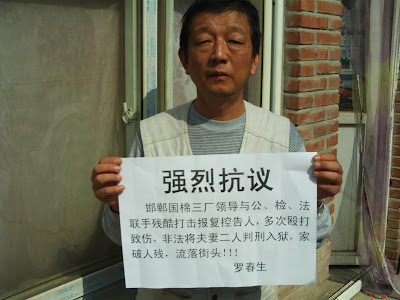 强烈抗议
邯郸国棉三厂领导与公、检、法
联手残酷打击报复控告人，多次殴打
致伤，非法将夫妻二人判刑入狱，家
破人残，流落街头!!!
罗春生